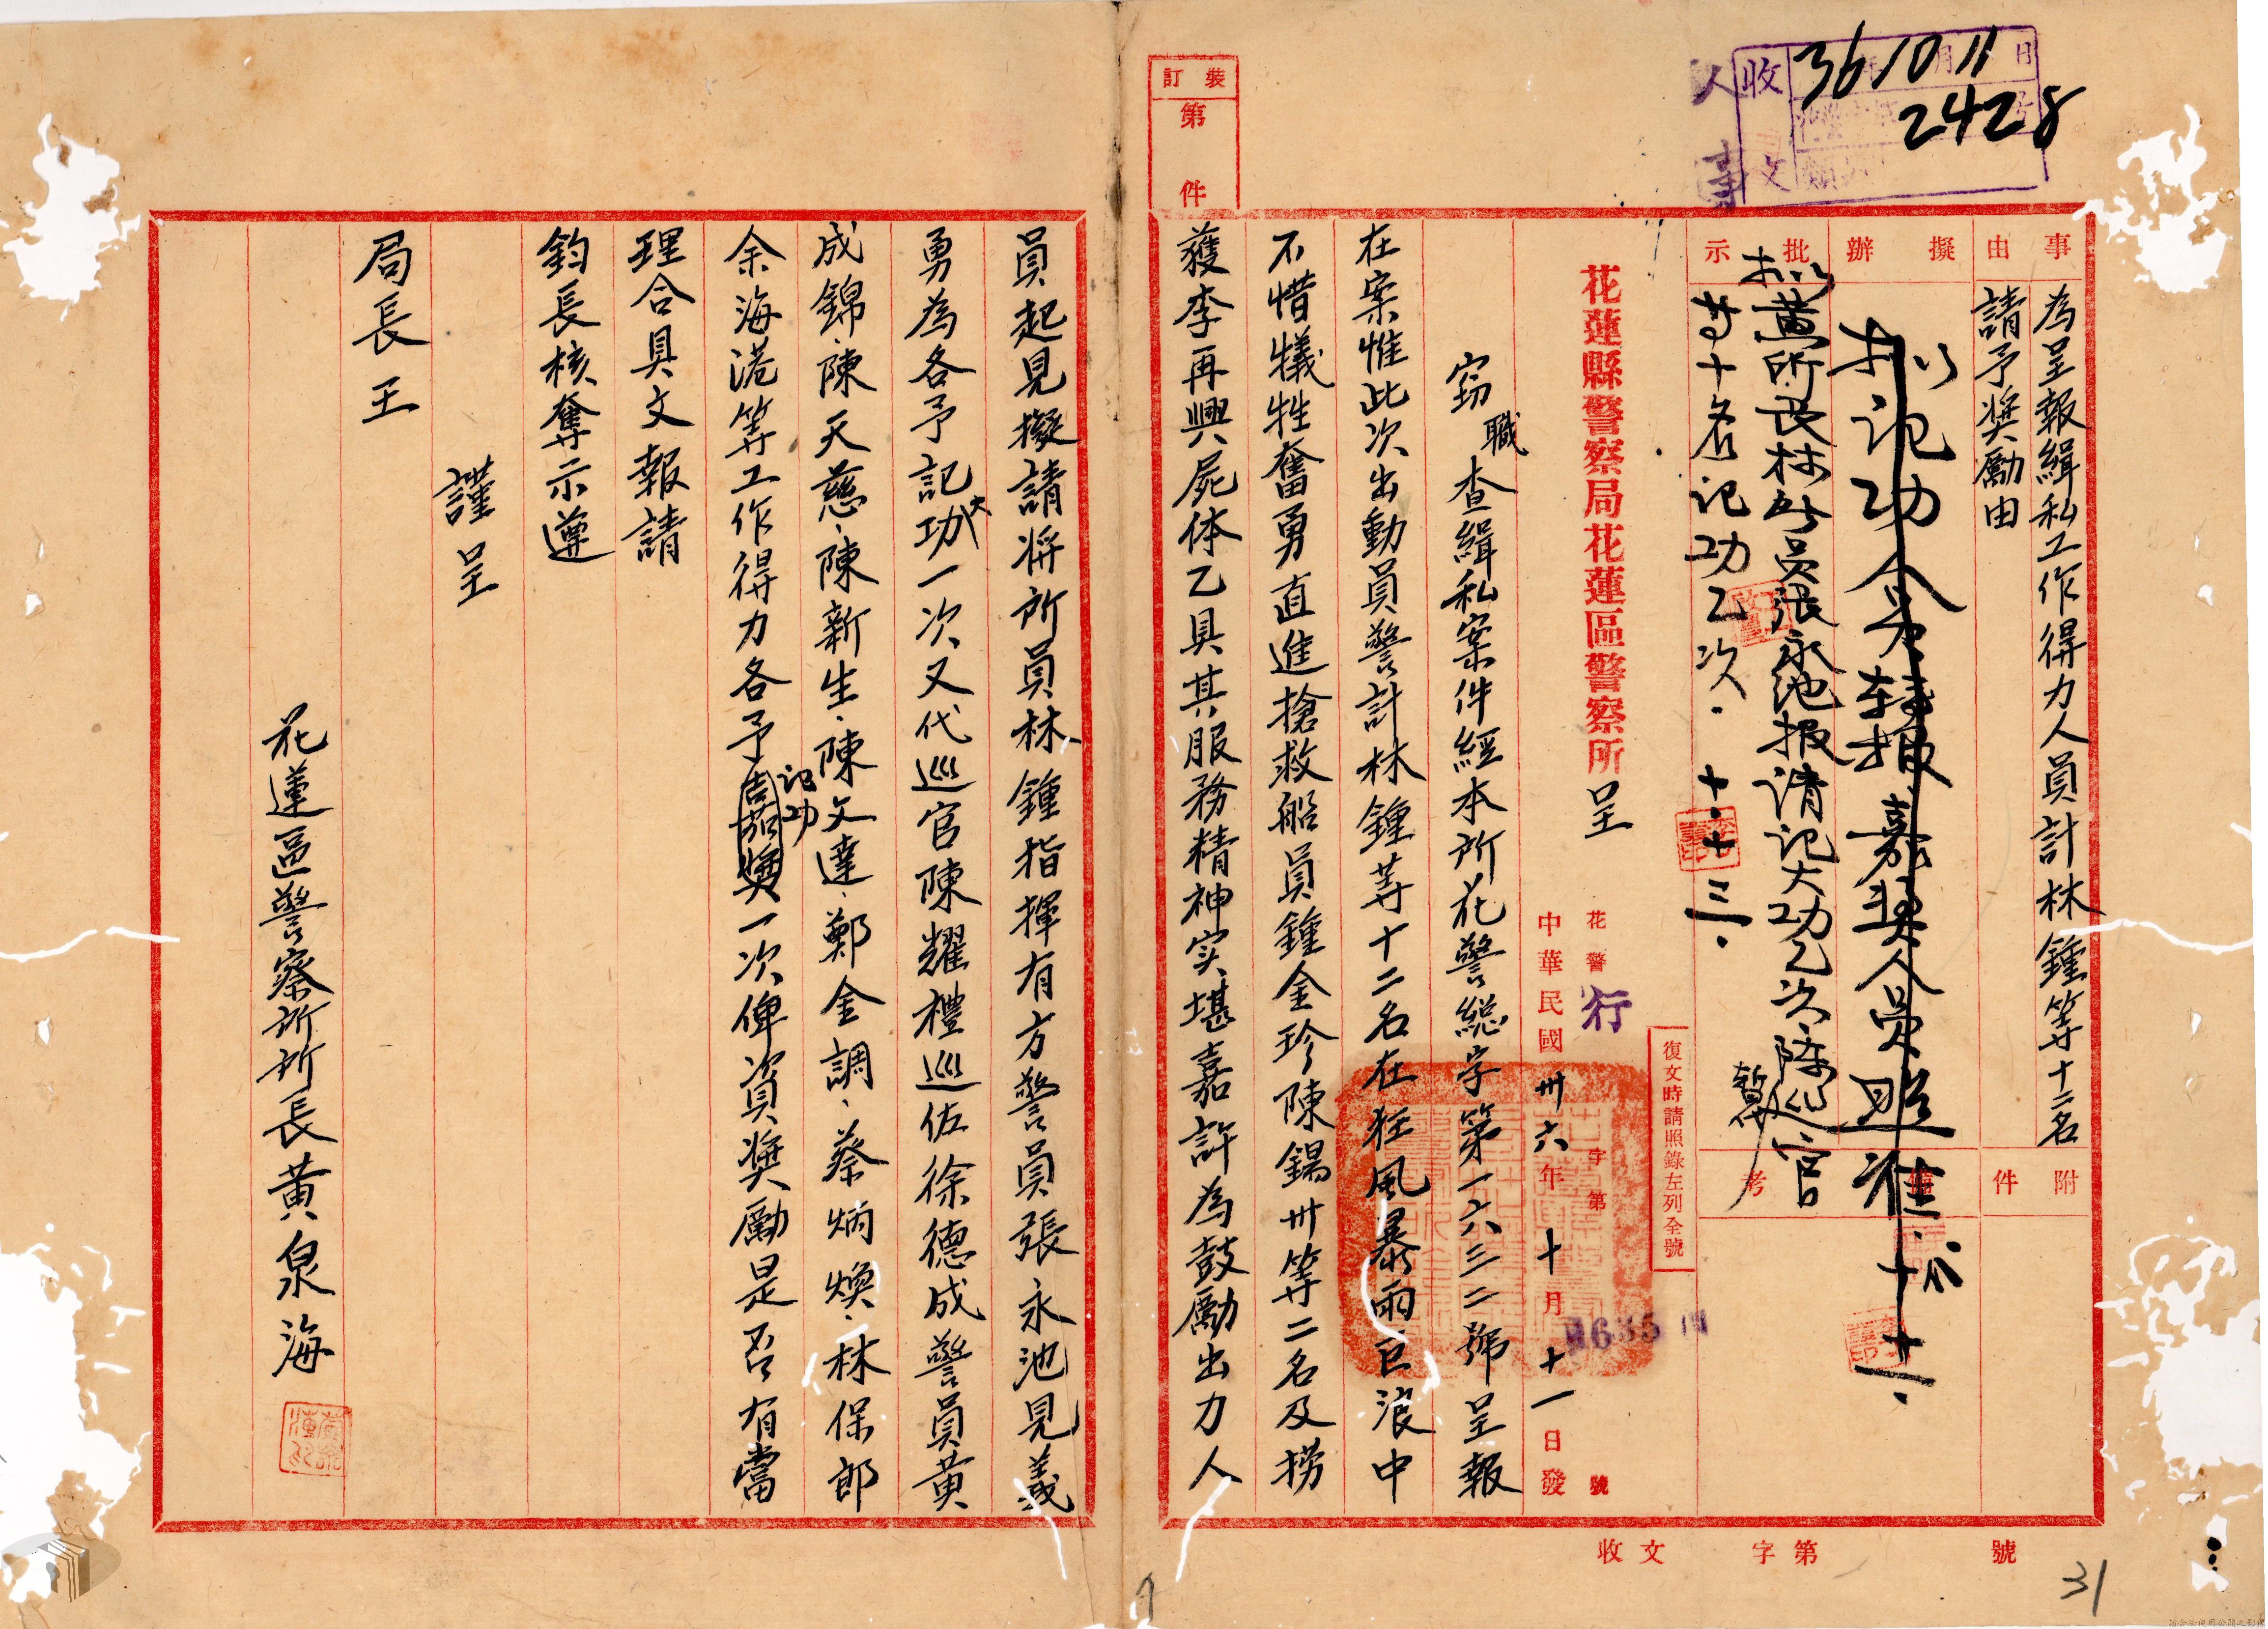 36 10 11
2428
收文
人事
事由
為呈報緝私工作得力人員計林鍾等十二名
請予奬勵由
擬辦
拟记功令轉报嘉奖人員照准
十、十一.
批示
拟黄所長林所员張永池报请记大功乙次陈巡官
等十名记功乙次. 暫
十.十三.
附件
備考
復文時請照錄左列全號
花蓮縣警察局花蓮區警察所呈
花警行字第 1635 號
中華民國卅六年十月十一日發
裝訂
第 件
竊職查緝私案件經本所花警総字第一六三二號呈報
在案惟此次出動員警計林鍾等十二名在狂風暴雨巨浪中
不惜犠牲奮勇直進搶救船員鍾金珍陳錫卅等二名及撈
獲李再興屍体乙具其服務精神实堪嘉許為鼓勵出力人
員起見擬請将所員林鍾指揮有方警員張永池見義
勇為各予記大功一次又代巡官陳耀禮巡佐徐德成警員黄
成錦、陳天慈、陳新生、陳文達、鄭金調、蔡炳煥、林保郎
余海港等工作得力各予记功一次俾資奬勵是否有當
理合具文報請
鈞長核奪示遵
謹呈
局長王
花蓮區警察所所長黄泉海
收文 字第 號
31